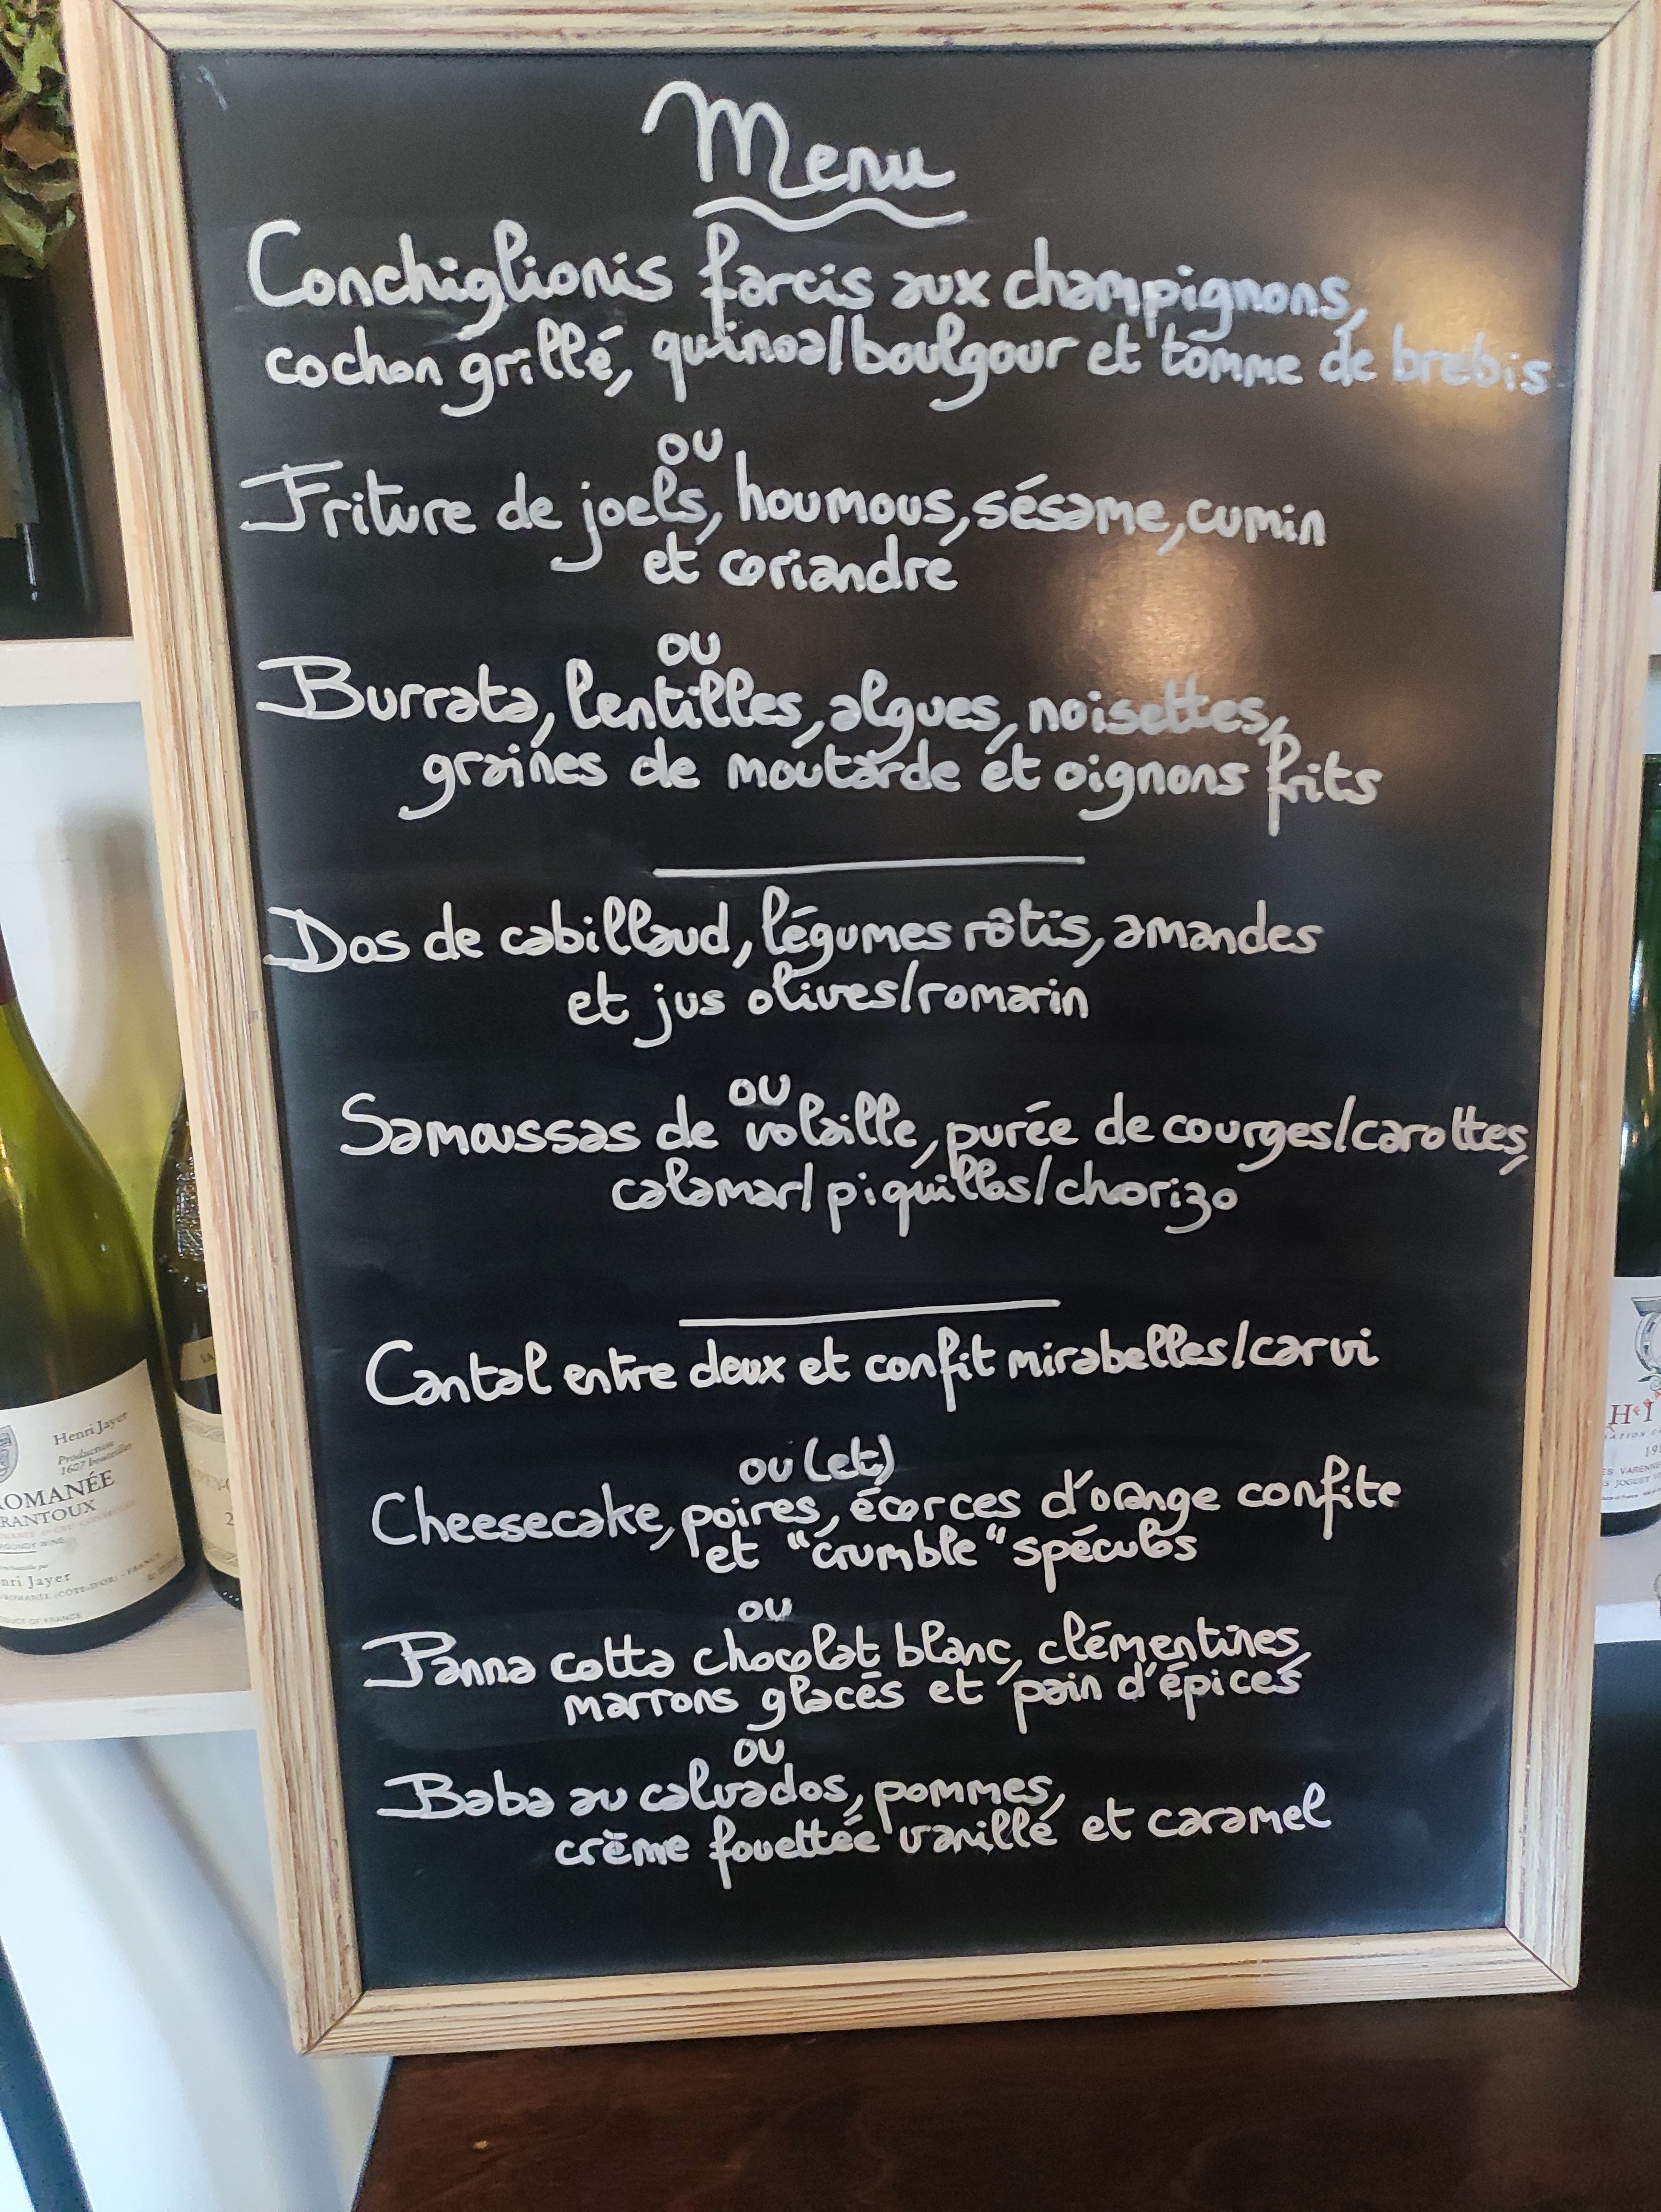 Menu
Conchiglionis farcis aux champignons,
cochon grillé, quinoa/boulgour et tomme de brebis
ou
Friture de joels, houmous, sésame, cumin
et coriandre
ou
Burrata, lentilles, algues, noisettes,
graines de moutarde et oignons frits
Dos de cabillaud, légumes rôtis, amandes
et jus olives/romarin
ou
Samoussas de volaille, purée de courges/carottes,
calamar/piquillos/chorizo
Cantal entre deux et confit mirabelles/carvi
ou (et)
Cheesecake, poires, écorces d'orange confite
et "crumble" spéculos
ou
Panna cotta chocolat blanc, clémentines,
marrons glacés et pain d'épices
ou
Baba au calvados, pommes,
crème fouettée vanille et caramel
Henri Jayer
Production
1607 bouteilles
OMANÉE
RANTOUX
nri Jayer